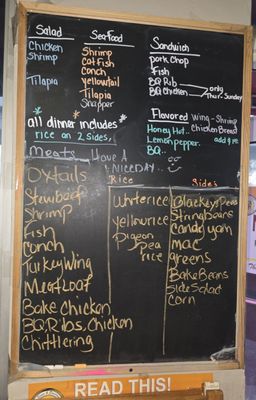 Salad
Chicken
Shrimp
Tilapia
Seafood
Shrimp
Catfish
Conch
yellowtail
Tilapia
Snapper
Sandwich
pork Chop
Fish
BQ Rib
BQ Chicken
only
Thur-Sunday
Flavored
Honey Hot..
Lemon pepper.
BQ..
Wing - Shrimp
Chicken Breast
all dinner includes
rice an 2 sides,
Meats
Have A
NICE DAY..
Oxtails
Stewbeef
Shrimp
Fish
Conch
Turkey Wing
Meat Loaf
Bake Chicken
BQ, Ribs, Chicken
Chittlering
Rice
White rice
yellow rice
Pigeon
pea
rice
Side's
Blackeye Peas
String beans
Candy yam
mac
greens
Bake Beans
Side Salad
Corn
READ THIS!